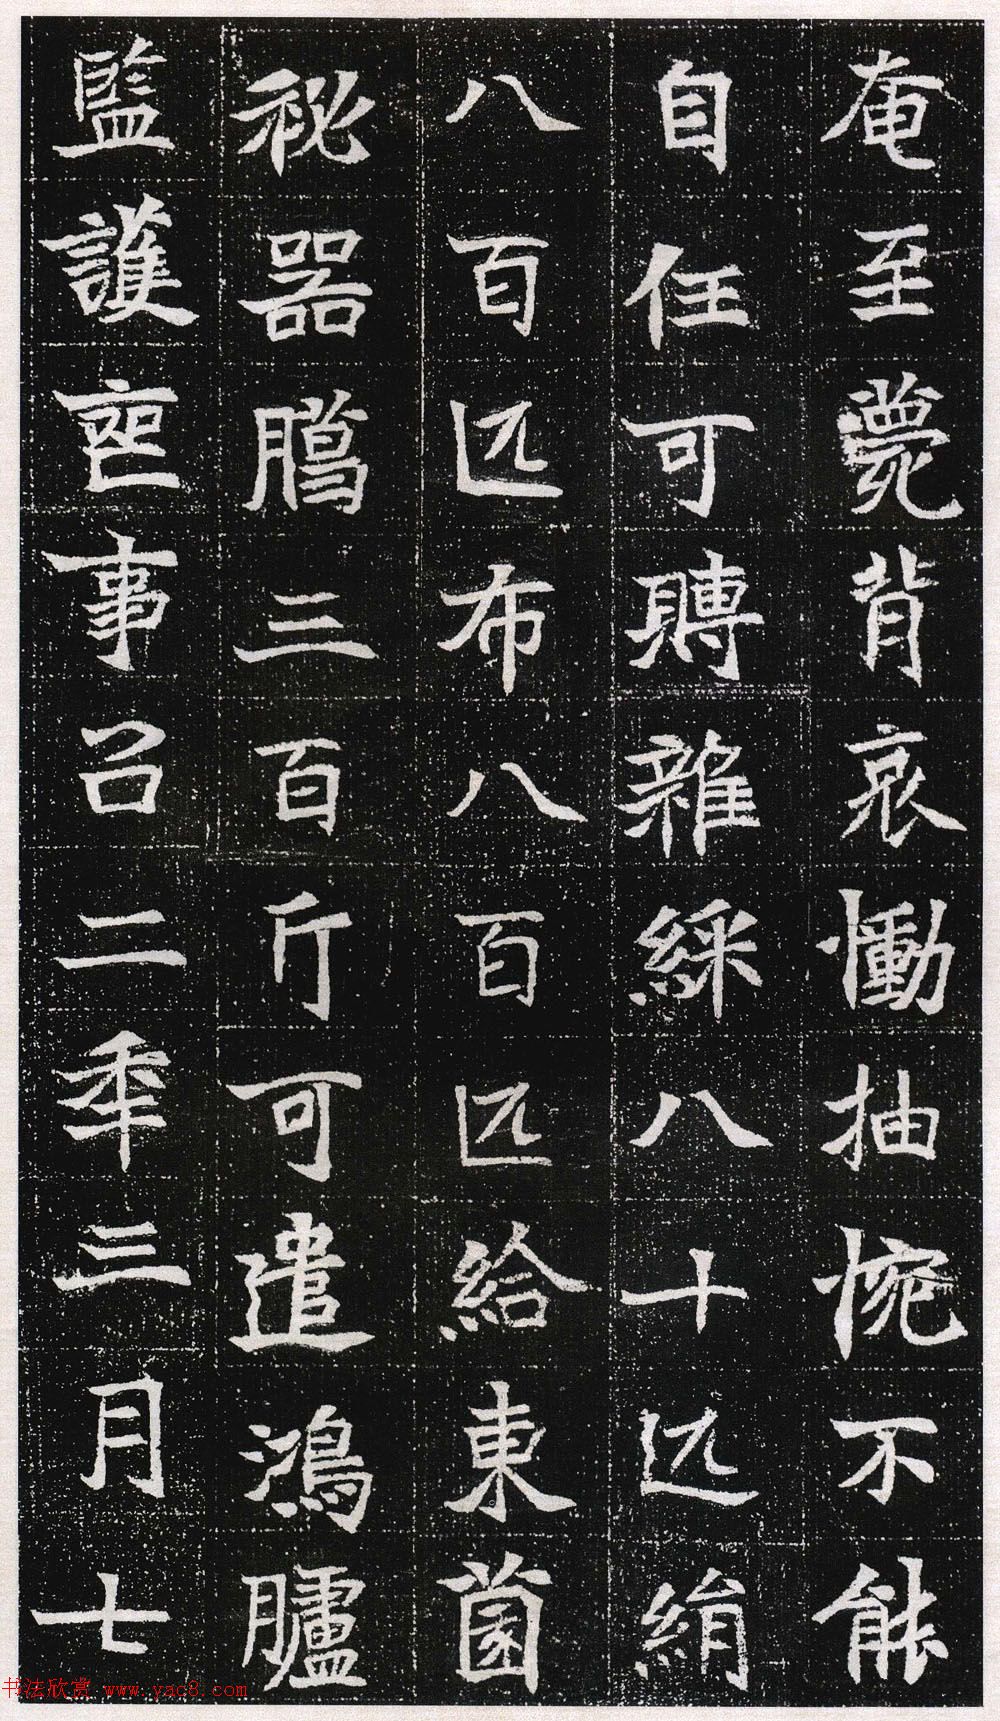 奄至薨背哀慟抽惋不能
自任可賻雜綵八十匹絹
八百匹布八百匹給東園
祕器臈三百斤可遣鴻臚
監護喪事召二年三月七
书法欣赏 www.yac8.com